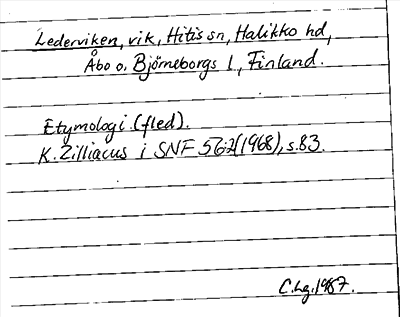 Lederviken, vik, Hitis sn, Halikko hd,
Åbo o. Björneborgs l, Finland.
Etymologi (fled).
K. Zilliacus i SNF 56:2 (1968), s. 83.
C.Lg. 1987.